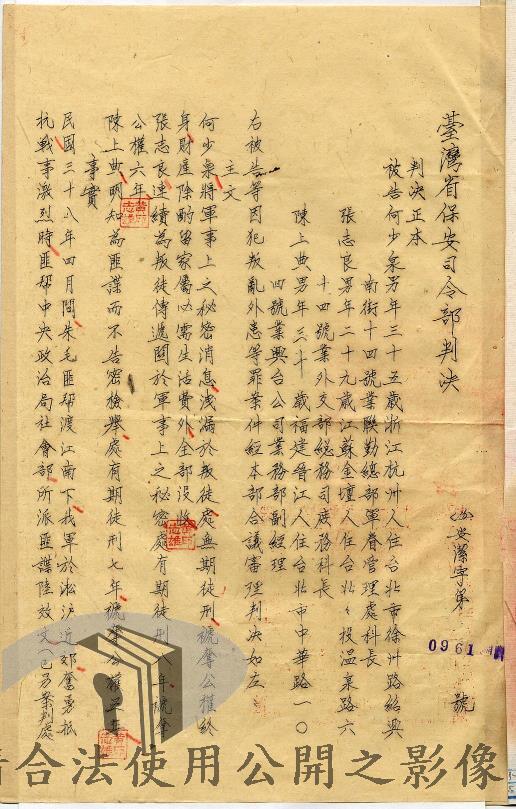 臺灣省保安司令部判決
安潔字第 0961 號
判決正本
被告何少泉男年三十五歲浙江杭州人住台北市徐州路紹興
南街十四號業聯勤總部軍眷管理處科長
張志良男年二十九歲江蘇金壇人住台北北投溫泉路六
十四號業外交部總務司庶務科長
陳上典男年三十歲福建晉江人住台北市中華路一〇
四號業興台公司業務部副經理
右被告等因犯叛亂外患等罪案件經本部合議審理判決如左
主文
何少泉將軍事上之秘密消息洩漏於叛徒處無期徒刑褫奪公權終
身財產除酌留家屬必需生活費外全部沒收
張志良連續為叛徒傳遞關於軍事上之秘密處有期徒刑八年褫奪
公權六年
陳上典明知為匪諜而不告密檢舉處有期徒刑七年褫奪公權五年
事實
民國三十八年四月間朱毛匪幫渡江南下我軍於淞滬近郊奮勇抵
抗戰事激烈時匪幫中央政治局社會部所派匪諜陸效文(已另案判處
合法使用公開之影像